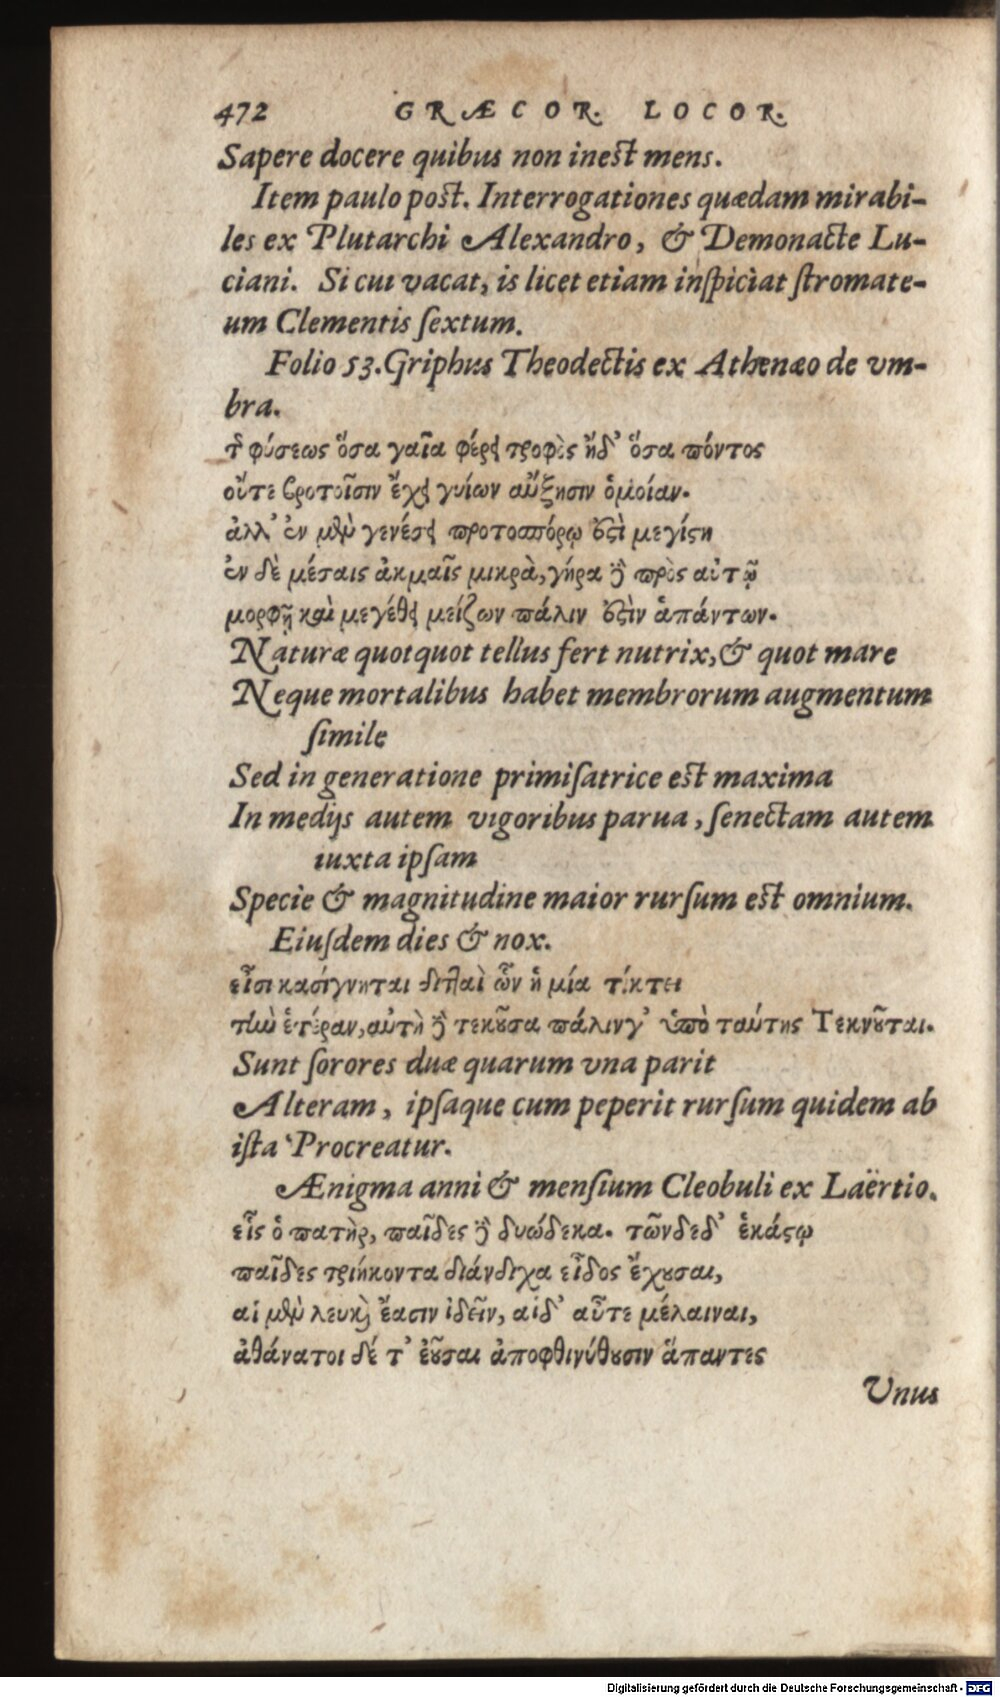 472 GRÆCOR. LOCOR.
Sapere docere quibus non inest mens.
Item paulo post. Interrogationes quædam mirabi-
les ex Plutarchi Alexandro, & Demonacte Lu-
ciani. Si cui vacat, is licet etiam inſpiciat ſtromate-
um Clementis ſextum.
Folio 53. Griphus Theodectis ex Athenæo de vm-
bra.
τῆς φύσεως ὅσα γαῖα φέρει τροφὸς ἠδ' ὅσα πόντος
οὔτε βροτοῖσιν ἔχει γυίων αὔξησιν ὁμοίαν.
ἀλλ' ἐν μὲν γενέσει πρωτοσπόρῳ ἐστὶ μεγίστη
ἐν δὲ μέσαις ἀκμαῖς μικρὰ, γήρᾳ δὲ πρὸς αὐτῷ
μορφῇ καὶ μεγέθει μείζων πάλιν ἐστὶν ἁπάντων.
Naturæ quotquot tellus fert nutrix, & quot mare
Neque mortalibus habet membrorum augmentum
ſimile
Sed in generatione primiſatrice est maxima
In medijs autem vigoribus parua, ſenectam autem
iuxta ipſam
Specie & magnitudine maior rurſum est omnium.
Eiuſdem dies & nox.
εἶσι κασίγνηται διτταὶ ὧν ἡ μία τίκτει
τὴν ἑτέραν, αὐτὴ δὲ τεκοῦσα πάλινγ' ὑπὸ ταύτης Τεκνοῦται.
Sunt ſorores duæ quarum vna parit
Alteram, ipſaque cum peperit rurſum quidem ab
iſta Procreatur.
Ænigma anni & menſium Cleobuli ex Laërtio.
εἷς ὁ πατὴρ, παῖδες δὲ δυώδεκα. τῶνδεδ' ἑκάστῳ
παῖδες τριήκοντα διάνδιχα εἶδος ἔχουσαι,
αἱ μὲν λευκαὶ ἔασιν ἰδεῖν, αἱδ' αὖτε μέλαιναι,
ἀθάνατοι δέ τ' ἐοῦσαι ἀποφθινύθουσιν ἅπαντες
Vnus
Digitalisierung gefördert durch die Deutsche Forschungsgemeinschaft - DFG